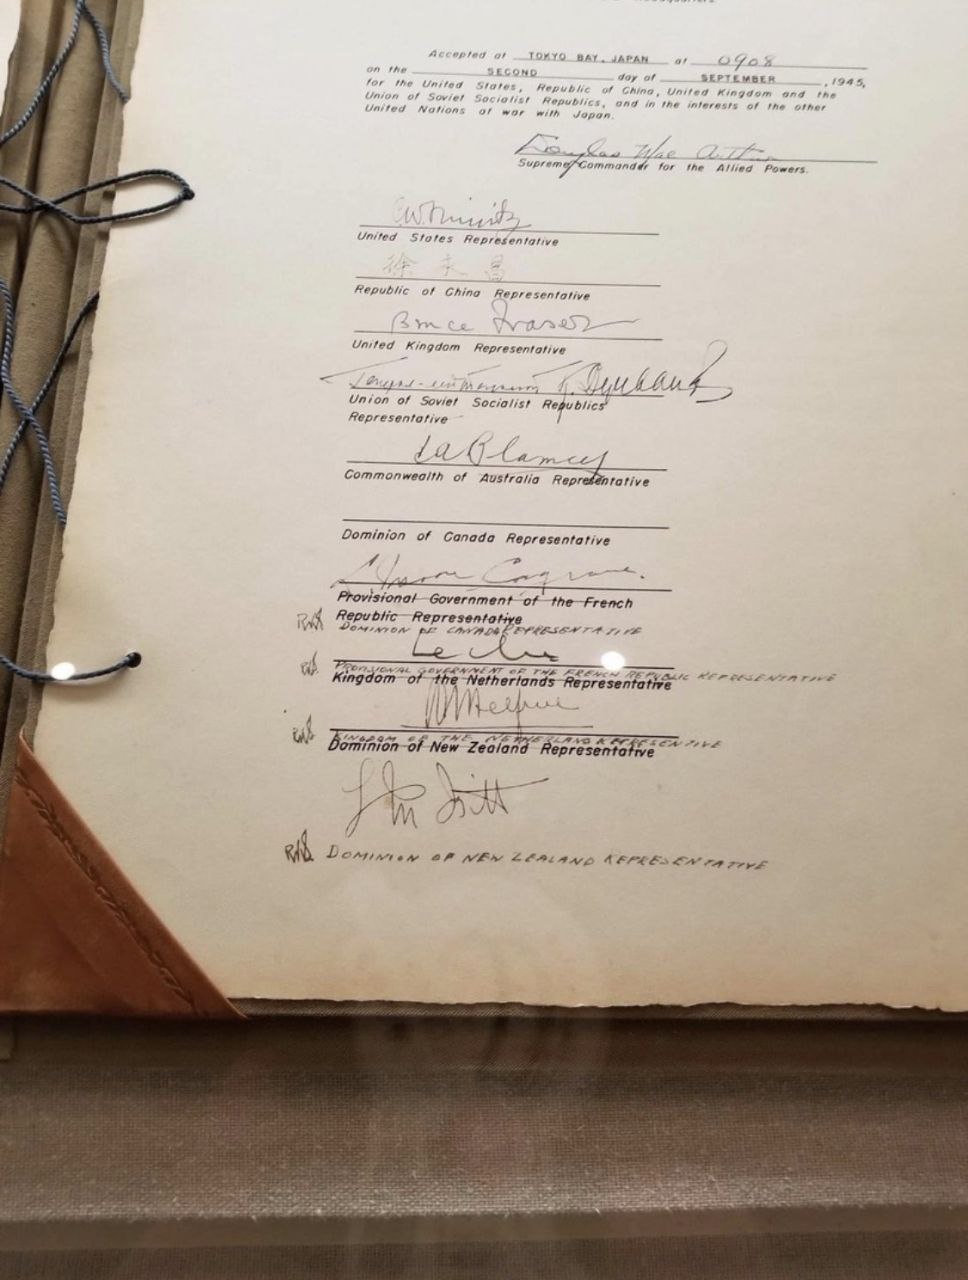 Accepted at TOKYO BAY, JAPAN at 0908
on the SECOND day of SEPTEMBER , 1945,
for the United States, Republic of China, United Kingdom and the
Union of Soviet Socialist Republics, and in the interests of the other
United Nations at war with Japan.
Douglas Mac Arthur
Supreme Commander for the Allied Powers.
C.W. Nimitz
United States Representative
徐永昌
Republic of China Representative
Bruce Fraser
United Kingdom Representative
Union of Soviet Socialist Republics
Representative
Blamey
Commonwealth of Australia Representative
Dominion of Canada Representative
Moore Cosgrave.
Provisional Government of the French
Republic Representative
DOMINION OF CANADA REPRESENTATIVE
Leclerc
PROVISIONAL GOVERNMENT OF THE FRENCH REPUBLIC REPRESENTATIVE
Kingdom of the Netherlands Representative
Helfrich
KINGDOM OF THE NETHERLAND REPRESENTIVE
Dominion of New Zealand Representative
Isitt
DOMINION OF NEW ZEALAND REPRESENTATIVE